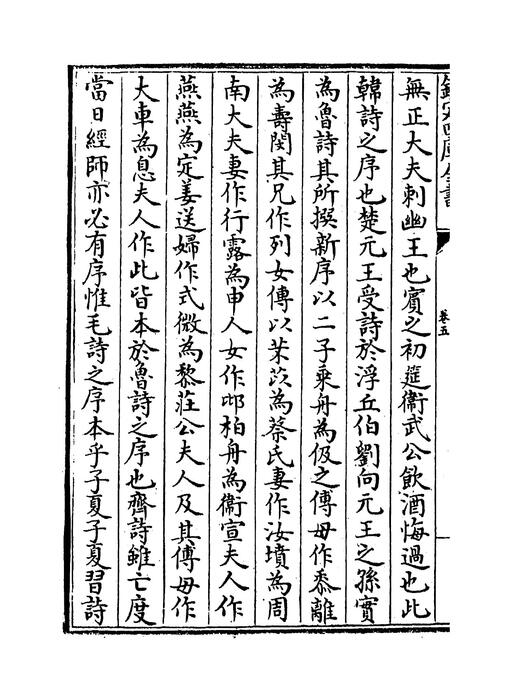 欽定四庫全書
卷五
無正大夫刺幽王也賓之初筵衞武公飲酒悔過也此
韓詩之序也楚元王受詩於浮丘伯劉向元王之孫實
為魯詩其所撰新序以二子乘舟為伋之傅毋作黍離
為壽閔其兄作列女傳以芣苡為蔡氏妻作汝墳為周
南大夫妻作行露為申人女作邶柏舟為衞宣夫人作
燕燕為定姜送婦作式微為黎莊公夫人及其傅毋作
大車為息夫人作此皆本於魯詩之序也齊詩雖亡度
當日經師亦必有序惟毛詩之序本乎子夏子夏習詩